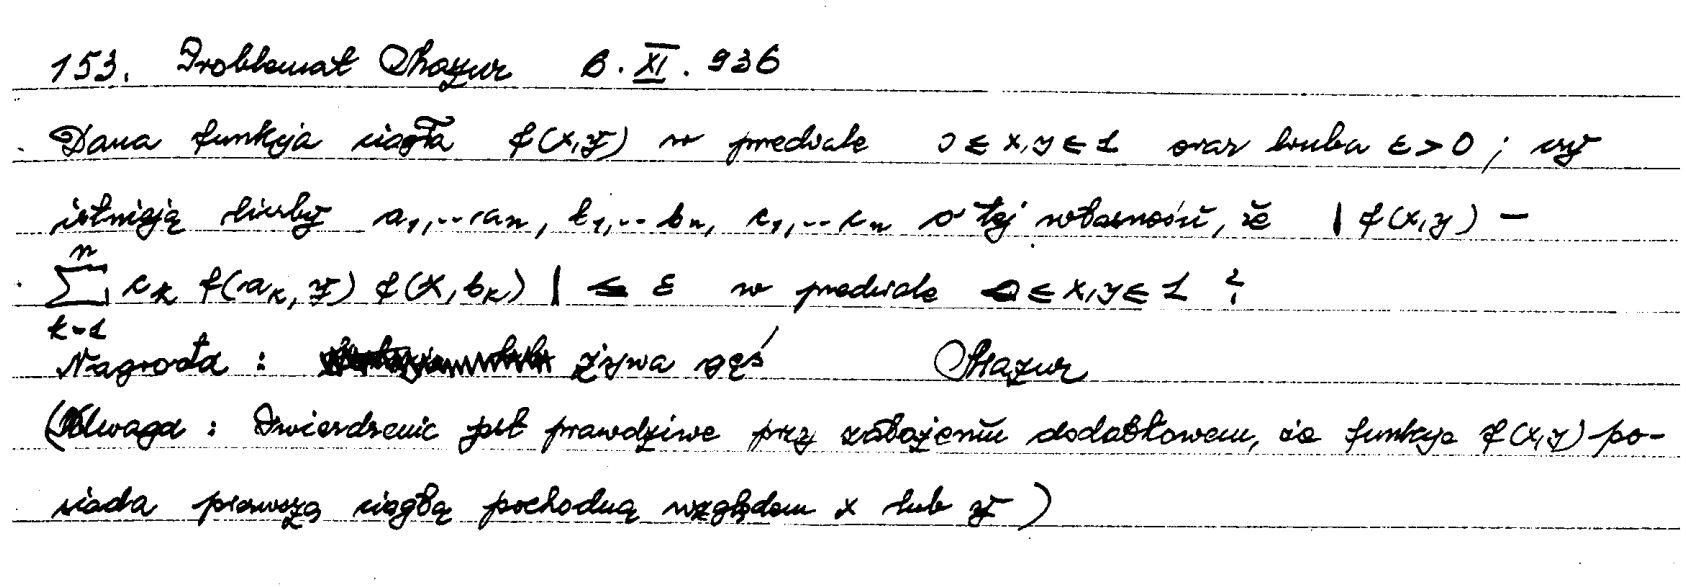 153. Problemat Mazur 6. XI. 936
Dana funkcja ciągła f(x,y) w predziale 0 ≤ x,y ≤ 1 oraz liczba ε > 0 ; czy
istnieją liczby a₁,..., aₙ, b₁,.. bₙ, c₁,.. cₙ o tej własności, że | f(x,y) –
∑ₖ₌₁ⁿ cₖ f(aₖ, y) f(x, bₖ) | ≤ ε w predziale 0 ≤ x,y ≤ 1 ?
Nagroda : żywa gęś Mazur
(Uwaga : Twierdzenie jest prawdziwe przy założeniu dodatkowem, że funkcja f(x,y) po-
siada pierwszą ciągłą pochodną względem x lub y )